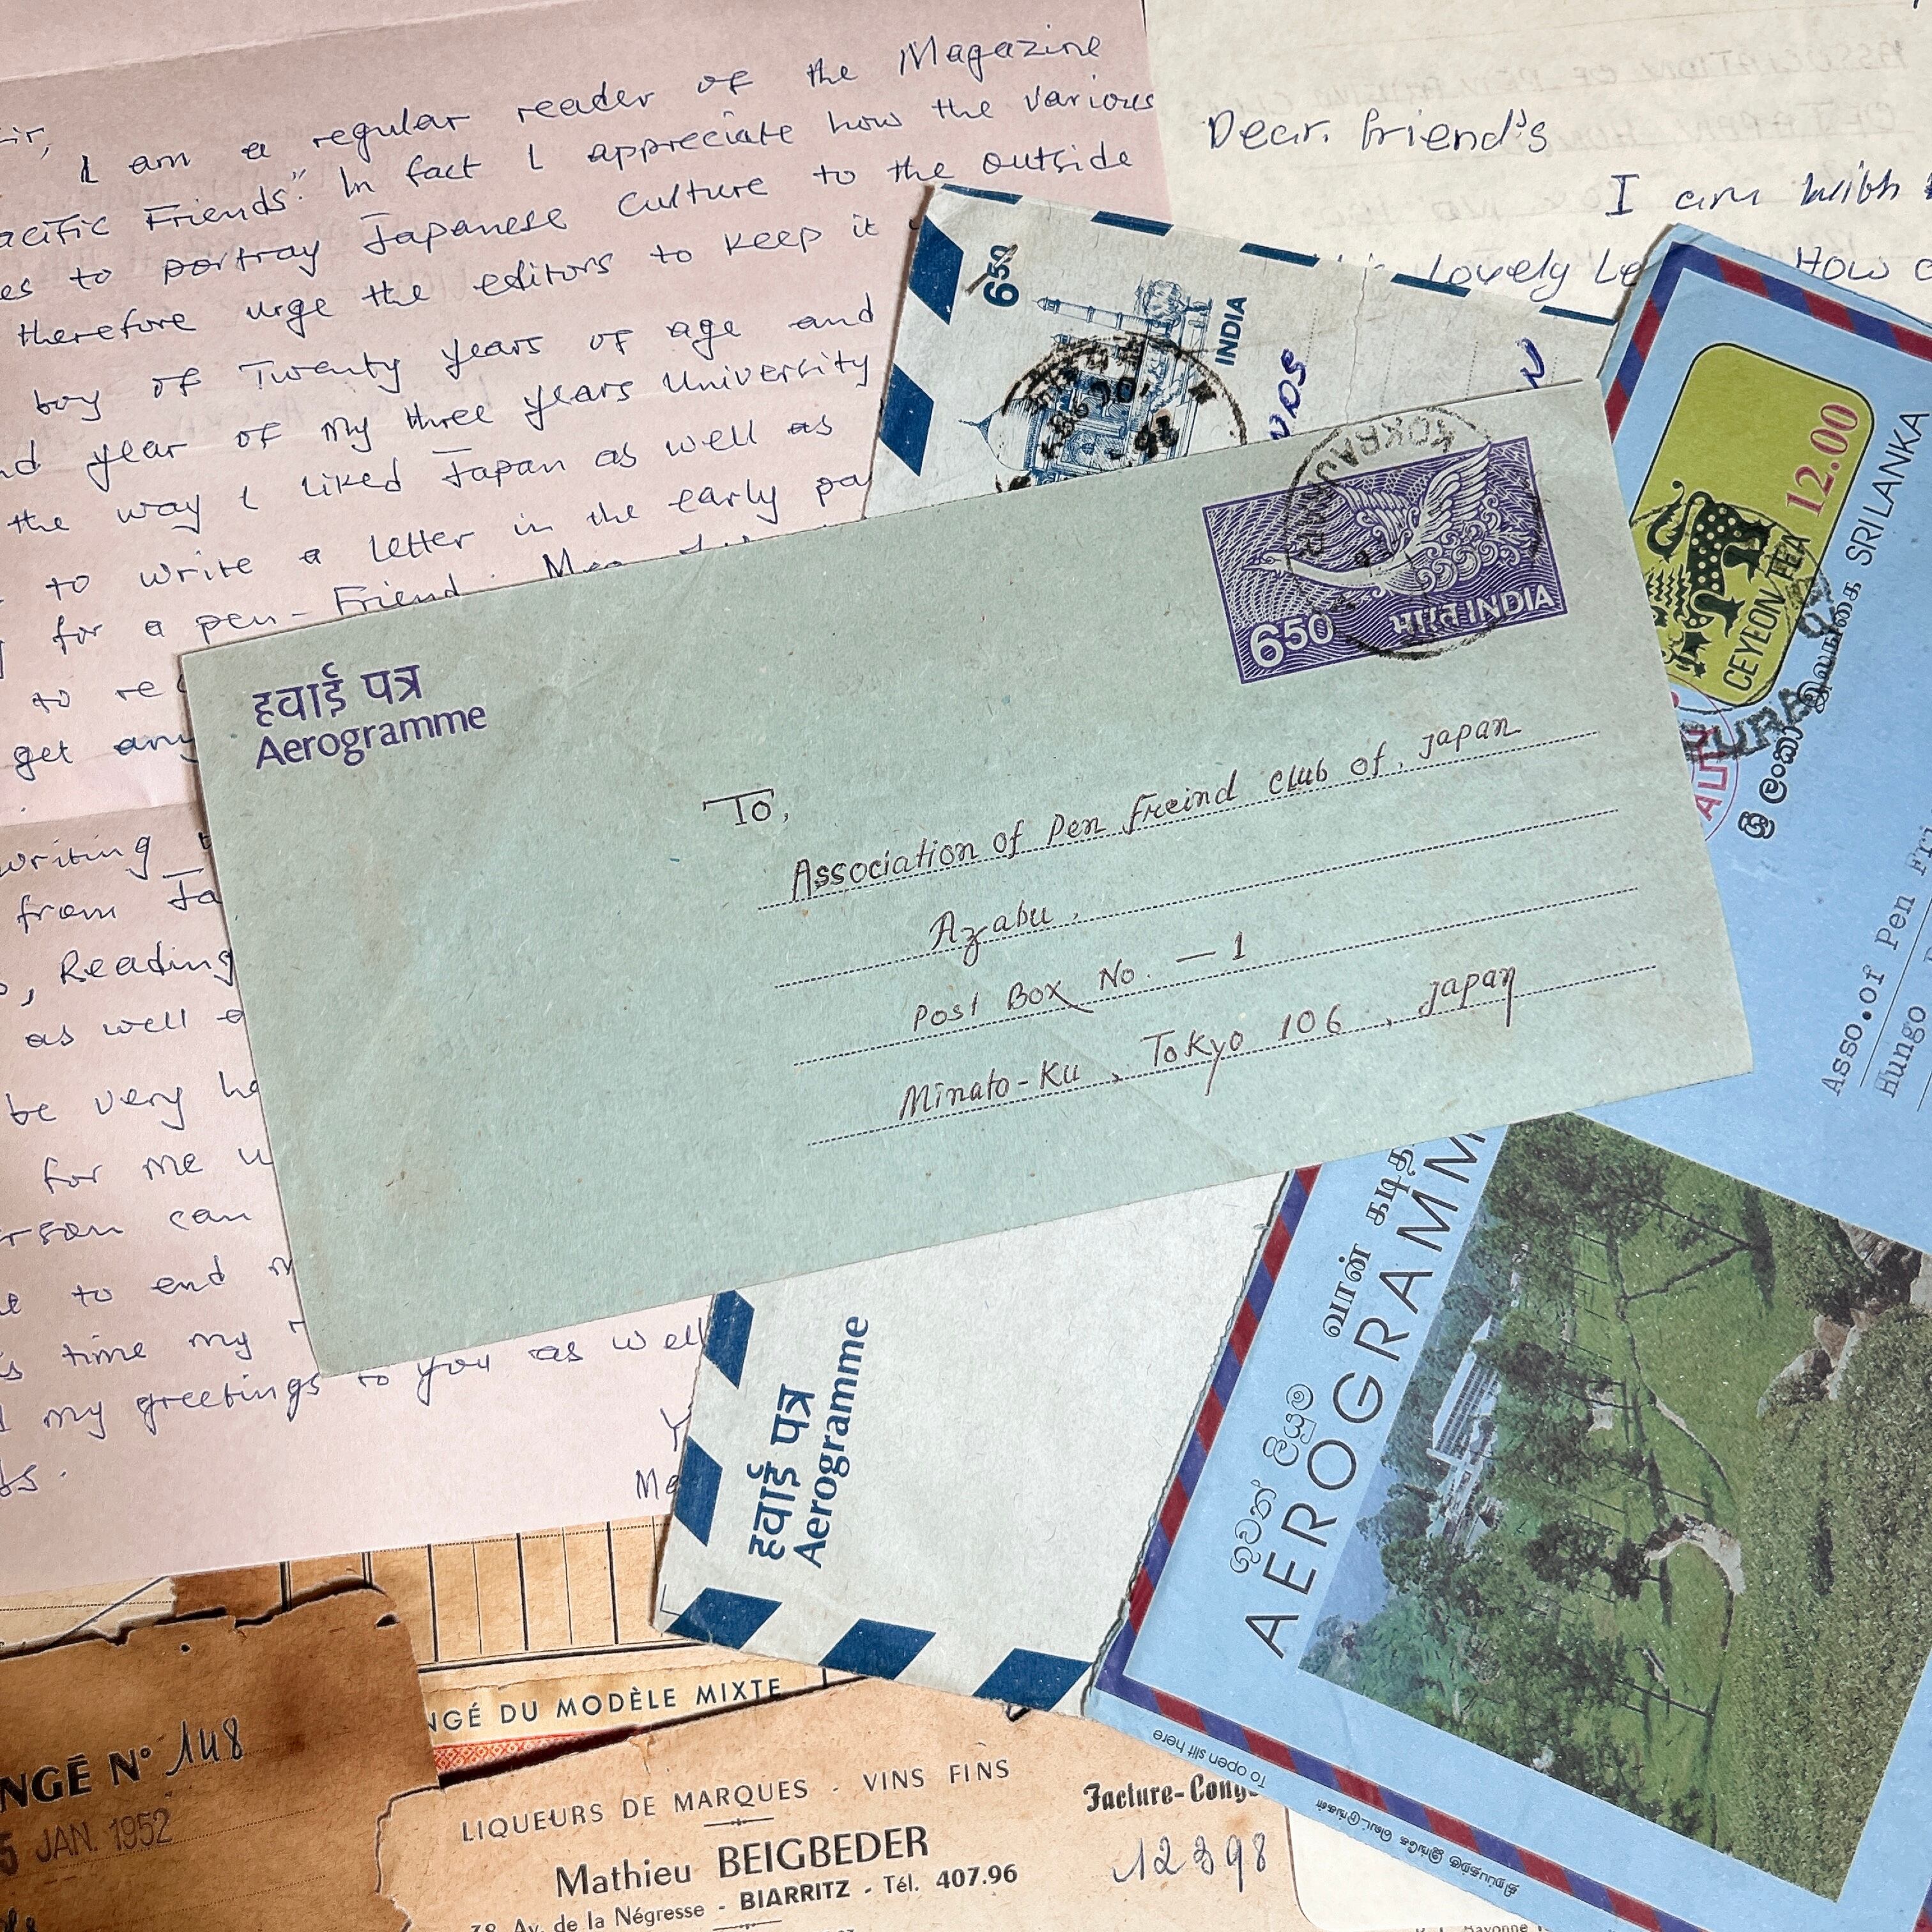 Sir,
I am a regular reader of the Magazine
acific Friends". In fact I appreciate how the various
es to portray Japanese Culture to the outside
therefore urge the editors to keep it
boy of Twenty years of age and
nd year of my three years University
the way I liked Japan as well as
to write a letter in the early pa
for a pen-Friend.
to re
get any
writing
from Ja
, Reading
as well a
be very ha
for me w
rson can
to end m
s time my
my greetings to you as well
ds.
Dear. friend's
I am with
Lovely Le
How
650
INDIA
हवाई पत्र
Aerogramme
650
भारत INDIA
KOKRAJHAR
To,
Association of Pen Freind Club of, Japan
Azabu,
Post Box No. - 1
Minato-Ku, Tokyo 106, Japan
12.00
CEYLON TEA
ශ්‍රී ලංකා இலங்கை SRI LANKA
Asso.of Pen Fri
Hungo
हवाई पत्र
Aerogramme
ගුවන් ලියුම வான் கடித
AEROGRAMM
To open slit here
NGÉ N° 148
5 JAN. 1952
NGÉ DU MODÈLE MIXTE
LIQUEURS DE MARQUES - VINS FINS
Mathieu BEIGBEDER
38 Av. de la Négresse - BIARRITZ - Tél. 407.96
Facture-Congé
12398